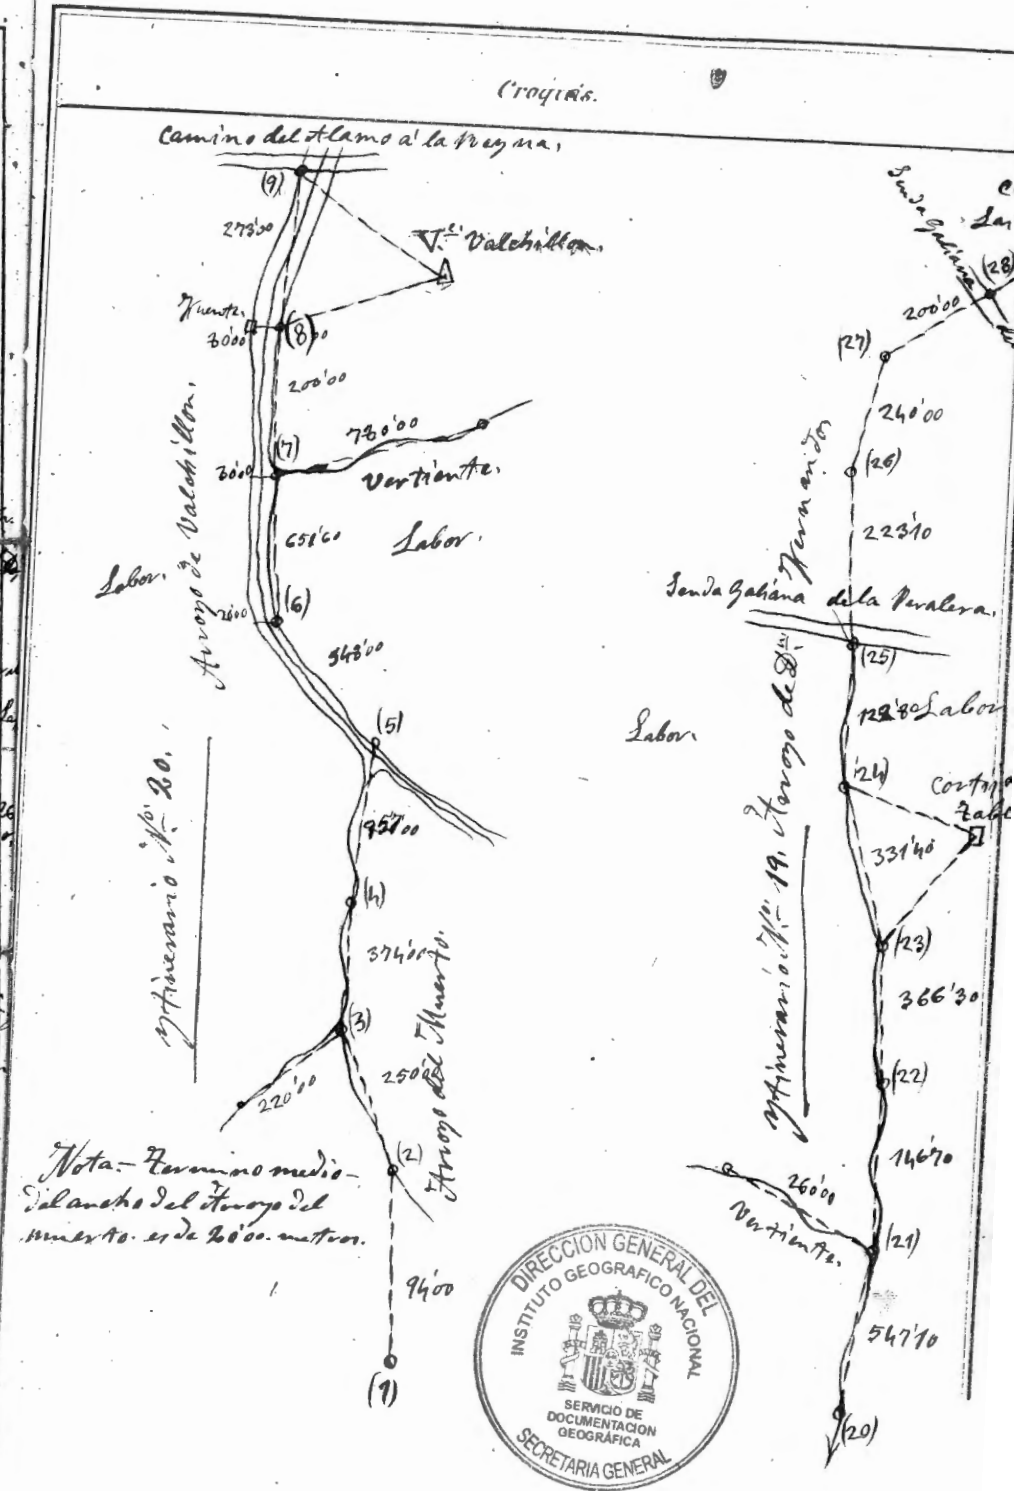 Croquis.
Camino del Alamo á la Reyna,
(9)
273'00
V.ce Valchillon.
Fuente.
30'00
(8)
200'00
(7)
780'00
Vertiente.
30'00
651'60
Labor.
Labor.
Arroyo de Valchillon.
(6)
548'00
(5)
Ytinerario N.º 20.
957'00
(4)
374'00
(3)
220'00
250'00
Arroyo del Muerto.
(2)
Nota.- Termino medio
del ancho del Arroyo del
muerto es de 20'00 metros.
94'00
(1)
Labor.
Senda Galiana
(28)
200'00
(27)
240'00
(26)
223'10
Senda Galiana de la Peralera.
(25)
Labor
(24)
331'40
(23)
366'30
(22)
146'70
Ytinerario N.º 19. Arroyo de D.n Hernando
260'00
Vertiente.
(21)
547'10
(20)
DIRECCION GENERAL DEL
INSTITUTO GEOGRAFICO NACIONAL
SERVICIO DE
DOCUMENTACION
GEOGRÁFICA
SECRETARIA GENERAL